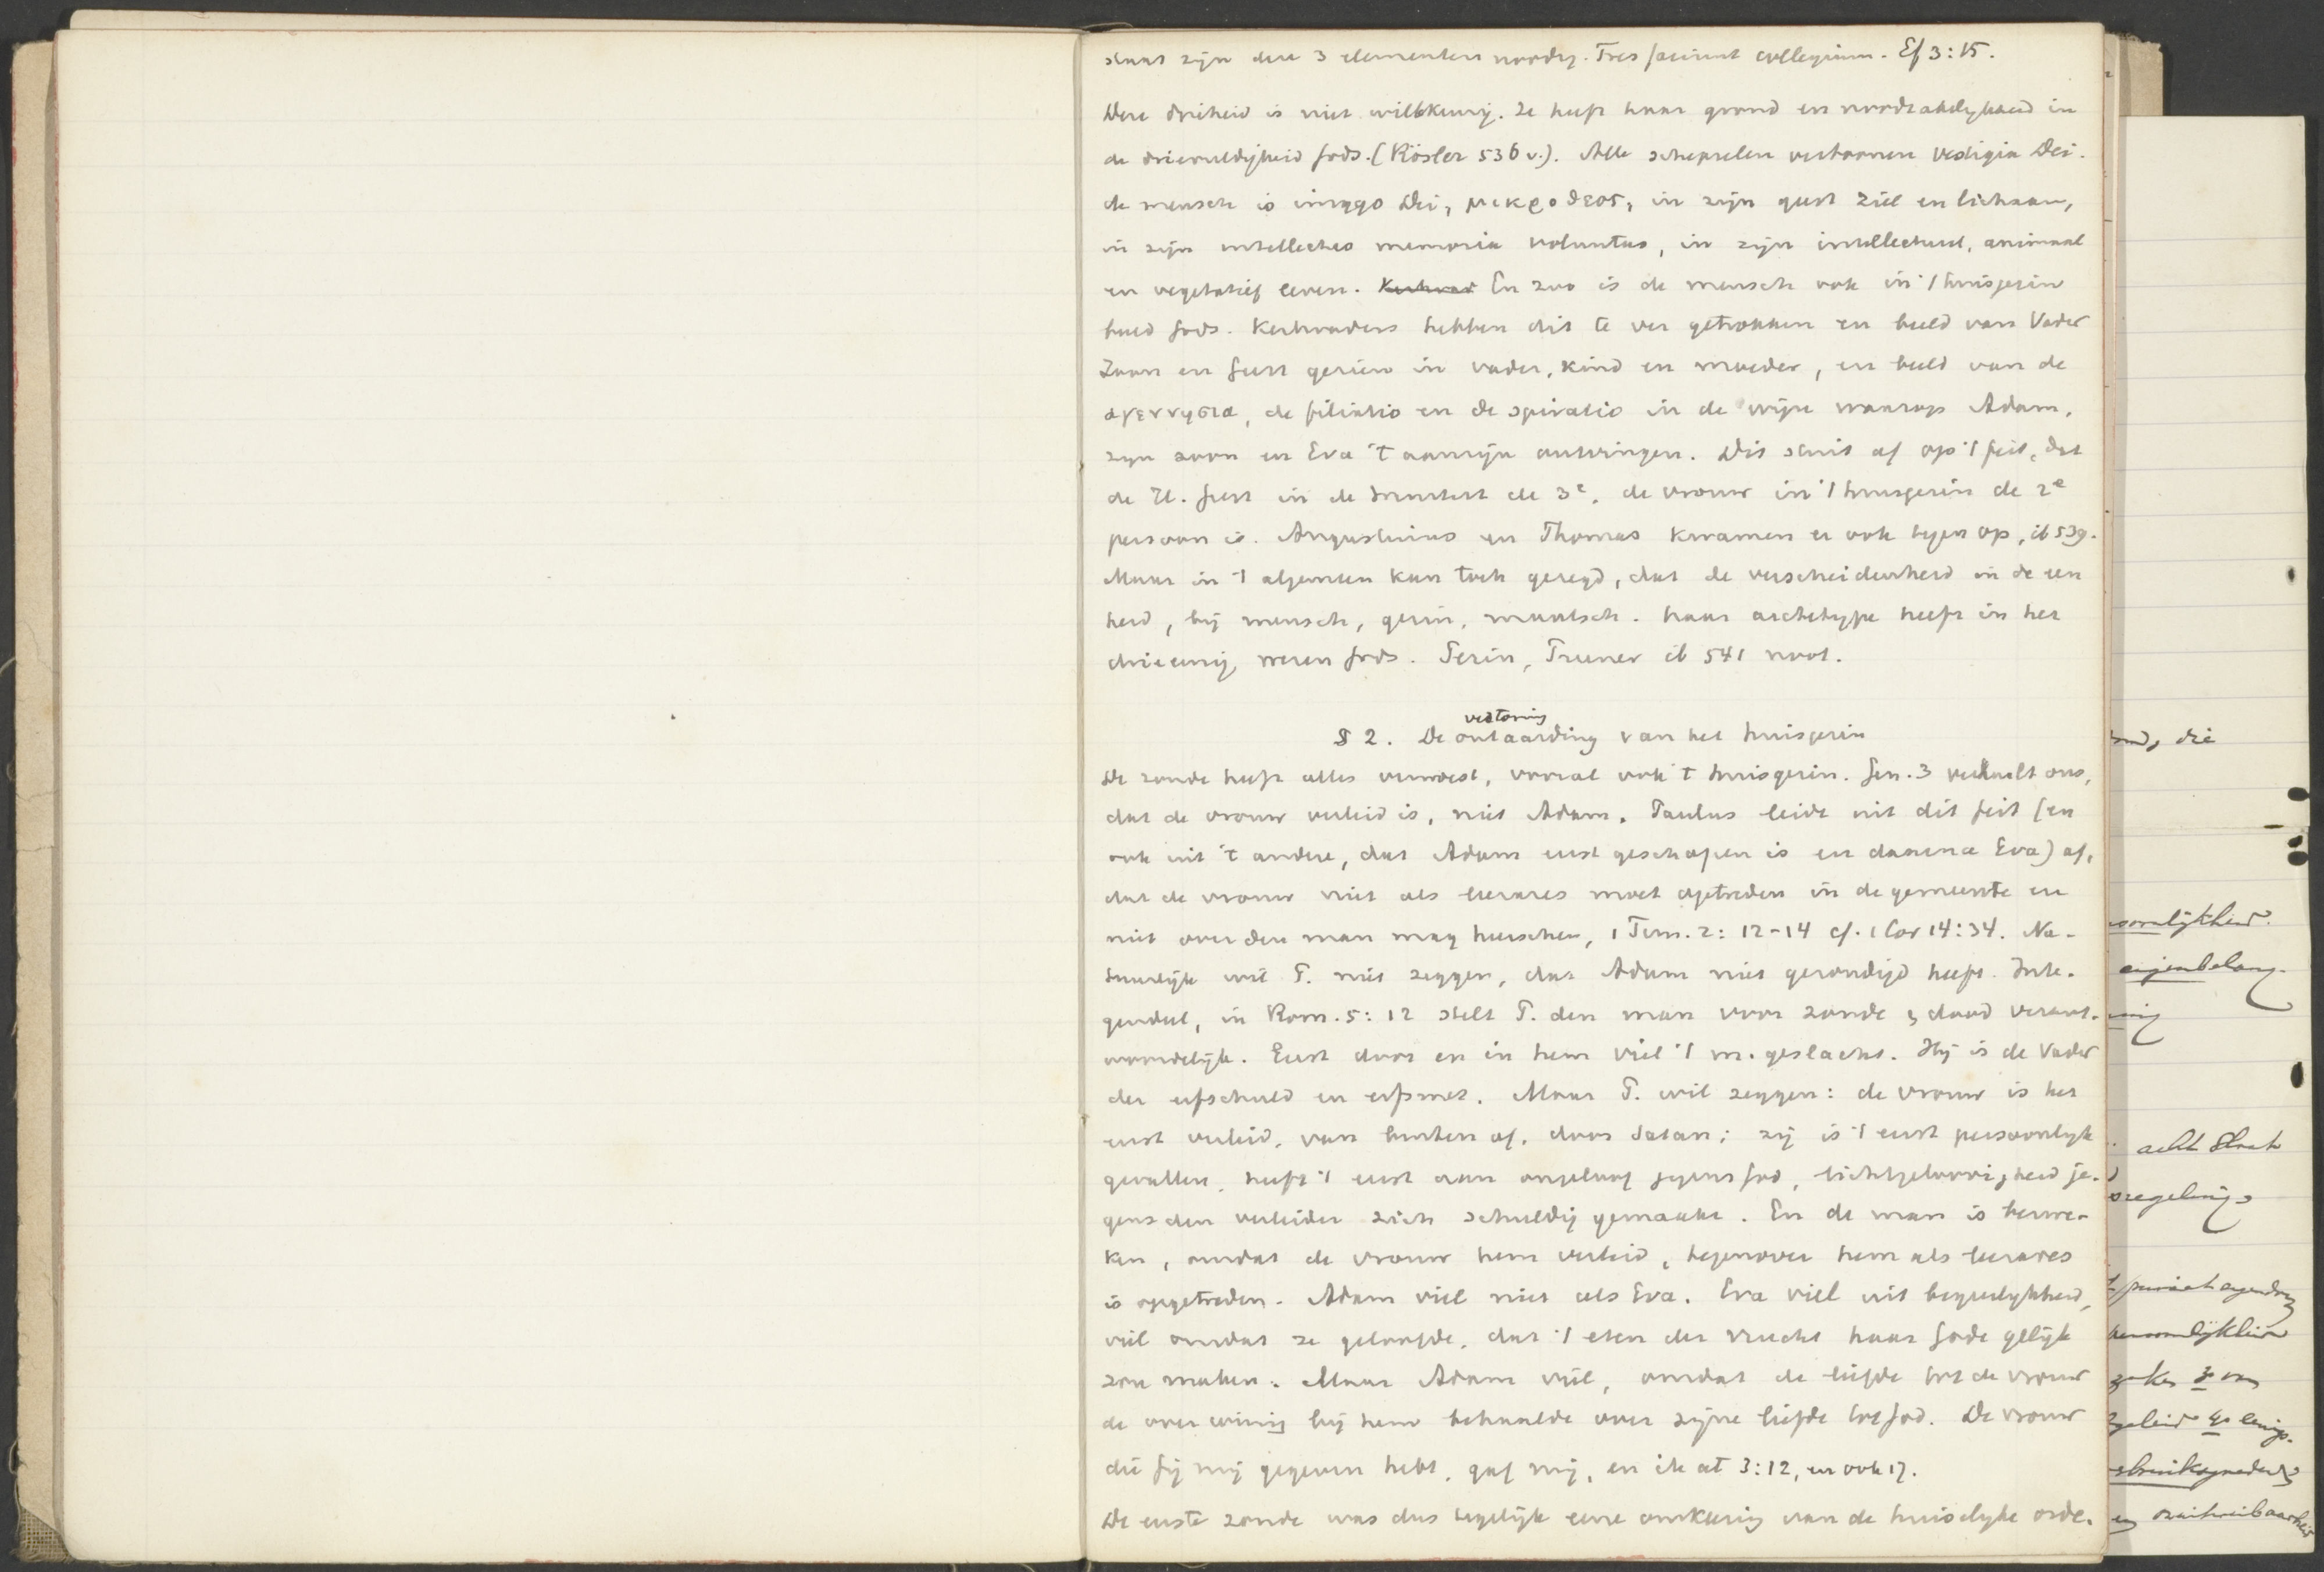 staat zijn deze 3 elementen noodig. Tres faciunt collegium. Ef 3:15.
Deze drieheid is niet willekeurig. Ze heeft haar grond en noodzakelykheid in
de drievuldigheid Gods. (Rösler 536 v.). Alle schepselen vertoonen vestigia Dei.
de mensch is imago Dei, μικροθεος, in zijn geest ziel en lichaam,
in zijn intellectus memoria voluntas, in zijn intellectueel, animaal
en vegetatief leven. Kerkvad En zoo is de mensch ook in 't huisgezin
beeld Gods. Kerkvaders hebben dit te ver getrokken en beeld van Vader
Zoon en Geest gezien in vader, kind en moeder, en beeld van de
αγεννησια, de filiatio en de spiratio in de wijze waarop Adam,
zyn zoon en Eva 't aanzijn ontvingen. Dit stuit af op 't feit, dat
de H. Geest in de Drieëenh. de 3e, de vrouw in 't huisgezin de 2e
persoon is. Augustinus en Thomas kwamen er ook tegen op, ib 539.
Maar in 't algemeen kan toch gezegd, dat de verscheidenheid in de een
heid, bij mensch, gezin, maatsch. haar archetype heeft in het
drieeenig wezen Gods. Gezin, Treener ib 541 noot.
§ 2. De ontaarding van het huisgezin
verstoring
De zonde heeft alles verwoest, vooral ook 't huisgezin. Gen. 3 verhaalt ons,
dat de vrouw verleid is, niet Adam. Paulus leidt uit dit feit (en
ook uit 't andere, dat Adam eerst geschapen is en daarna Eva) af,
dat de vrouw niet als leerares moet optreden in de gemeente en
niet over den man mag heerschen, 1 Tim. 2: 12-14 cf. 1 Cor 14:34. Na-
tuurlijk wil P. niet zeggen, dat Adam niet gezondigd heeft. Inte-
gendeel, in Rom. 5: 12 stelt P. den man voor zonde & dood verant-
woordelijk. Eerst door en in hem viel 't m. geslacht. Hij is de Vader
der erfschuld en erfsmet. Maar P. wil zeggen: de vrouw is het
eerst verleid, van buiten af, door Satan; zij is 't eerst persoonlyk
gevallen, heeft 't eerst aan ongeloof jegens God, lichtgeloovigheid je-
gens den verleider zich schuldig gemaakt. En de man is bezwe-
ken, omdat de vrouw hem verleid, tegenover hem als leerares
is opgetreden. Adam viel niet als Eva. Eva viel uit begeerlykheid,
viel omdat ze geloofde, dat 't eten der vrucht haar Gode gelijk
zou maken. Maar Adam viel, omdat de liefde tot de vrouw
de overwinnig bij hem behaalde over zijne liefde tot God. De vrouw
die Gij mij gegeven hebt, gaf mij, en ik at 3:12, en ook 17.
De eerste zonde was dus tegelijk eene omkeering van de huiselyke orde.
die
eigenbelang.
acht